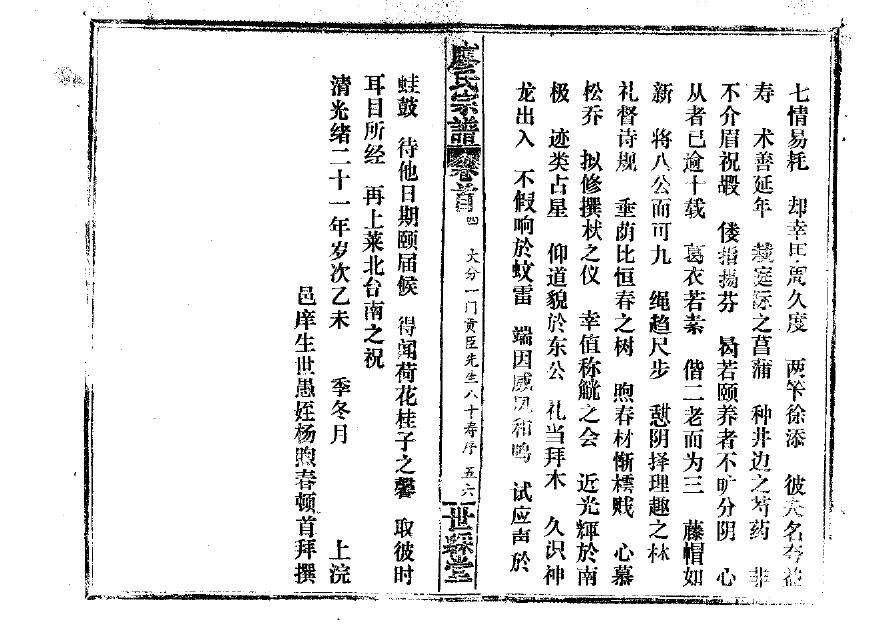 七情易耗 却幸甲周久度 两竿徐添 彼 名
寿 术善延年 庭际之菖蒲 种井边之芍药 非
不介眉祝嘏 偻指扬芬 曷若颐养者不旷分阴 心
从者已逾十载 葛衣若素 偕二老而为三 藤帽如
新 将八公而可九 绳趋尺步 憩阴择理趣之林
礼督诗规 垂荫比恒春之树 煦春材惭樗贱 心慕
松乔 拟修撰杖之仪 幸值称觥之会 近光輝於南
极 迹类占星 仰道貌於东公 礼当拜木 久识神
龙出入 不假响於蚊雷 端因威凤和鸣 试应声於
廖氏宗譜 卷首 四 大分一门贡臣先生八十寿序 五六 世綵堂
蛙鼓 待他日期颐届候 得闻荷花桂子之馨 取彼时
耳目所经 再上莱北台南之祝
清光绪二十一年岁次乙未 季冬月 上浣
邑庠生世愚姪杨煦春顿首拜撰